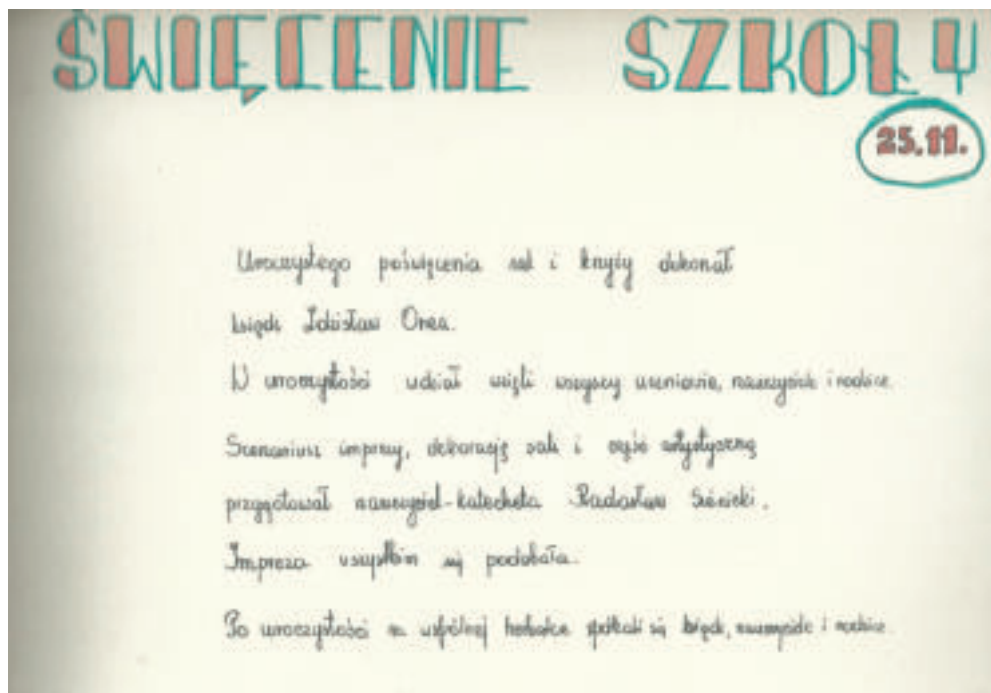 ŚWIĘCENIE SZKOŁY
25.11.
Uroczystego poświęcenia sal i krzyży dokonał
ksiądz Zdzisław Orea.
W uroczystości udział wzięli wszyscy uczniowie, nauczyciele i rodzice.
Scenariusz imprezy, dekorację sali i część artystyczną
przygotował nauczyciel-katecheta Radosław
Impreza wszystkim się podobała.
Po uroczystości na wspólnej herbatce spotkali się ksiądz, nauczyciele i rodzice.